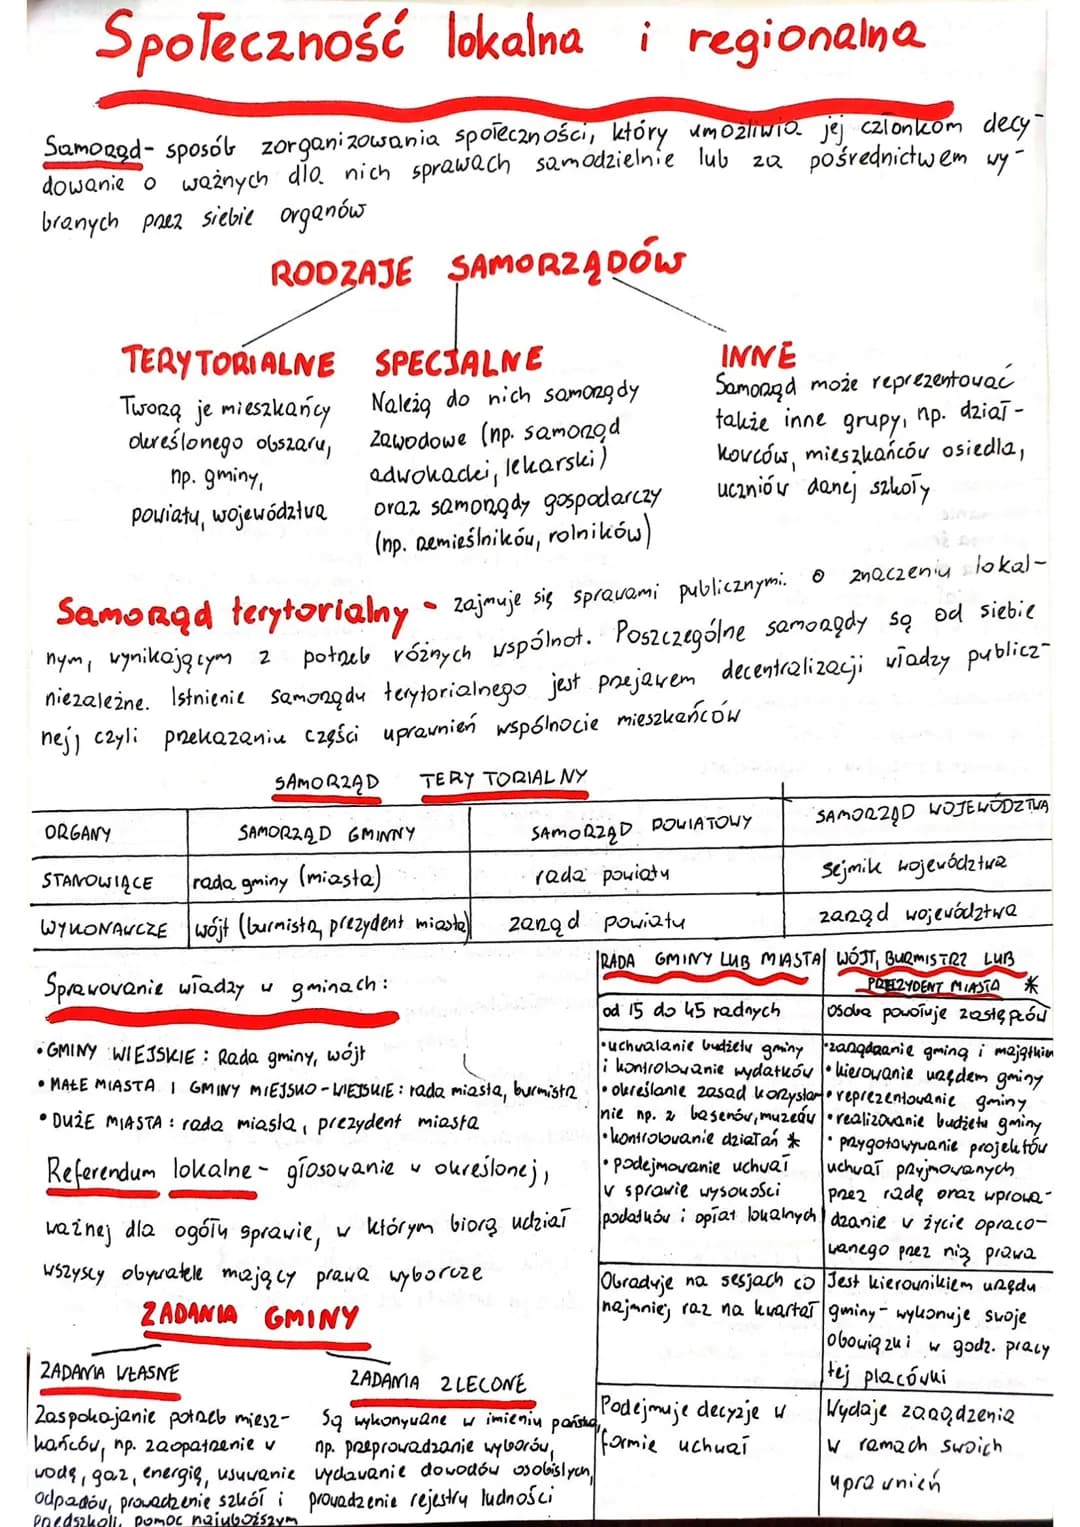 Społeczność lokalna i regionalna
Samorząd- sposób zorganizowania społeczności, który umożliwia jej członkom decy-
dowanie o ważnych dla nich sprawach samodzielnie lub za pośrednictwem wy-
branych przez siebie organów
RODZAJE SAMORZĄDÓW
TERYTORIALNE
Tworzą je mieszkańcy
określonego obszaru,
np. gminy,
powiatu, województwa
SPECJALNE
Należą do nich samorządy
zawodowe (np. samorząd
adwokacki, lekarski)
oraz samorządy gospodarczy
(np. rzemieślników, rolników)
INNE
Samorząd może reprezentować
także inne grupy, np. dział-
kowców, mieszkańców osiedla,
uczniów danej szkoły
Samorząd terytorialny - zajmuje się sprawami publicznymi. o znaczeniu lokal-
nym, wynikającym z potrzeb różnych wspólnot. Poszczególne samorządy są od siebie
niezależne. Istnienie samorządu terytorialnego jest przejawem decentralizacji władzy publicz-
nej, czyli przekazaniu części uprawnień wspólnocie mieszkańców
SAMORZĄD TERYTORIALNY
ORGANY SAMORZĄD GMINNY SAMORZĄD POWIATOWY SAMORZĄD WOJEWÓDZTWA
STANOWIĄCE rada gminy (miasta) rada powiatu sejmik województwa
WYKONAWCZE wójt (burmistrz, prezydent miasta) zarząd powiatu zarząd województwa
Sprawowanie władzy w gminach:
• GMINY WIEJSKIE: Rada gminy, wójt
• MAŁE MIASTA I GMINY MIEJSKO-WIEJSKIE: rada miasta, burmistrz
• DUŻE MIASTA: rada miasta, prezydent miasta
Referendum lokalne - głosowanie w określonej,
ważnej dla ogółu sprawie, w którym biorą udział
wszyscy obywatele mający prawa wyborcze
ZADANIA GMINY
ZADANIA WŁASNE
Zaspokajanie potrzeb miesz-
kańców, np. zaopatrzenie w
wodę, gaz, energię, usuwanie
odpadów, prowadzenie szkół i
przedszkoli, pomoc najuboższym
ZADANIA ZLECONE
Są wykonywane w imieniu państwa,
np. przeprowadzanie wyborów,
wydawanie dowodów osobistych,
prowadzenie rejestru ludności
RADA GMINY LUB MIASTA
od 15 do 45 radnych
• uchwalanie budżetu gminy
i kontrolowanie wydatków
• określanie zasad korzysta-
nie np. z basenów, muzeów
• kontrolowanie działań *
• podejmowanie uchwał
w sprawie wysokości
podatków i opłat lokalnych
Obraduje na sesjach co
najmniej raz na kwartał
Podejmuje decyzje w
formie uchwał
WÓJT, BURMISTRZ LUB
PREZYDENT MIASTA *
Osoba powołuje zastępców
• zarządzanie gminą i majątkiem
• kierowanie urzędem gminy
• reprezentowanie gminy
• realizowanie budżetu gminy
• przygotowywanie projektów
uchwał przyjmowanych
przez radę oraz wprowa-
dzanie w życie opraco-
wanego przez nią prawa
Jest kierownikiem urzędu
gminy - wykonuje swoje
obowiązki w godz. pracy
tej placówki
Wydaje zarządzenia
w ramach swoich
uprawnień